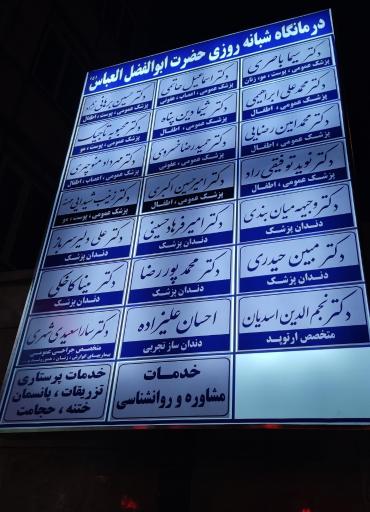 درمانگاه شبانه روزی حضرت ابوالفضل العباس (ع)
دکتر سیما باصری
پزشک عمومی ، پوست ، مو، زنان
دکتر اسماعیل حاتمی
پزشک عمومی ، اعصاب ، عفونی
دکتر حسین برهانی نژاد
پزشک عمومی ، پوست ، اطفال
دکتر محمدعلی ابراهیمی
پزشک عمومی ، اطفال
دکتر شیما دین پناه
پزشک عمومی ، اطفال
دکتر محبوبه
پزشک عمومی ، پوست ، مو
دکتر محمدامین رضایی
پزشک عمومی ، اطفال
دکتر حمیدرضا خسروی
پزشک عمومی ، عفونی
دکتر مهرداد منوچهری
پزشک عمومی ، اعصاب ، اطفال
دکتر نوید توفیقی راد
پزشک عمومی ، اطفال
دکتر امیرحسین اکبری
پزشک عمومی ، اطفال
دکتر
پزشک عمومی ، پوست ، مو
دکتر وجیهه میان بندی
دندان پزشک
دکتر امیر فرهاد حسینی
دندان پزشک
دکتر علی دلیر سرباز
دندان پزشک
دکتر مبین حیدری
دندان پزشک
دکتر محمد پوررضا
دندان پزشک
دکتر مینا کاخکی
دندان پزشک
دکتر نجم الدین اسدیان
متخصص ارتوپد
احسان علیزاده
دندان ساز تجربی
دکتر سارا سعیدی
متخصص جراحی عمومی
خدمات
مشاوره و روانشناسی
خدمات پرستاری
تزریقات ، پانسمان
ختنه ، حجامت